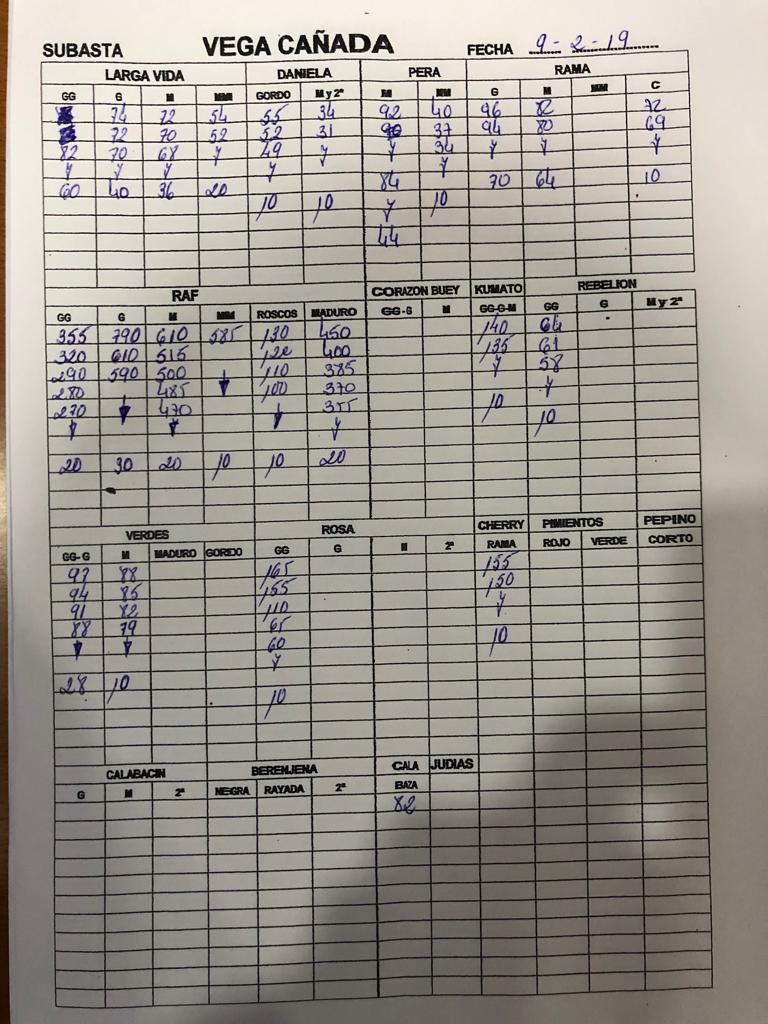 SUBASTA VEGA CAÑADA FECHA 9-2-19
LARGA VIDA DANIELA PERA RAMA
GG G M MM GORDO M y 2ª M MM G M MM C
74 72 54 55 34 92 40 96 82 72
72 70 52 52 31 90 37 94 80 69
82 70 68 y 49 y y 34 y y y
y y y y y
60 40 36 20 84 70 64 10
10 10 y 10
44
RAF CORAZON BUEY KUMATO REBELION
GG G M MM ROSCOS MADURO GG-G M GG-G-M GG G M y 2ª
355 790 610 585 130 450 140 64
320 610 515 120 400 135 61
290 590 500 110 385 y 58
280 485 100 370 y
270 470 355 10
y 10
20 30 20 10 10 20
VERDES ROSA CHERRY PIMIENTOS PEPINO
GG-G M MADURO GORDO GG G M 2ª RAMA ROJO VERDE CORTO
97 88 165 155
94 85 155 150
91 82 110 y
88 79 65
60 10
y
28 10 10
CALABACIN BERENJENA CALA JUDIAS
G M 2ª NEGRA RAYADA 2ª BAZA
82